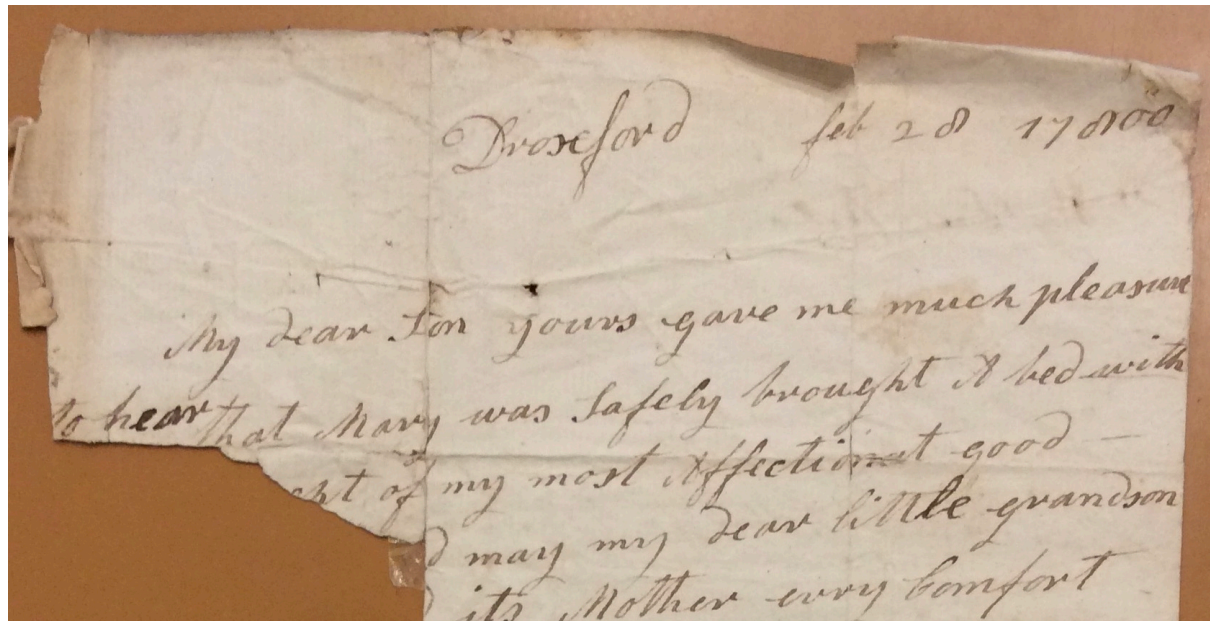 Droxford feb 28 17800
My dear Son yours gave me much pleasure
to hear that Mary was Safely brought A bed with
of my most Affectionat good —
may my dear little grandson
its Mother evry Comfort